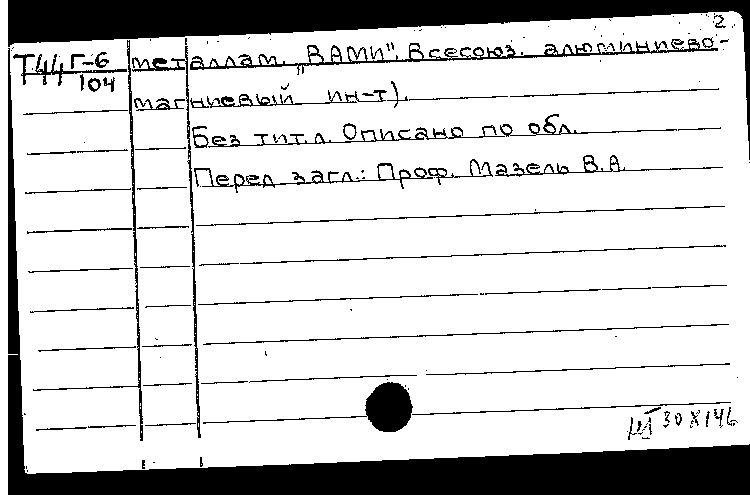 2
Т44 Г-6
104
металлам. „ВАМИ". Всесоюз. алюминиево-
магниевый ин-т).
Без тит.л. Описано по обл.
Перед загл.: Проф. Мазель В.А.
30 X 146